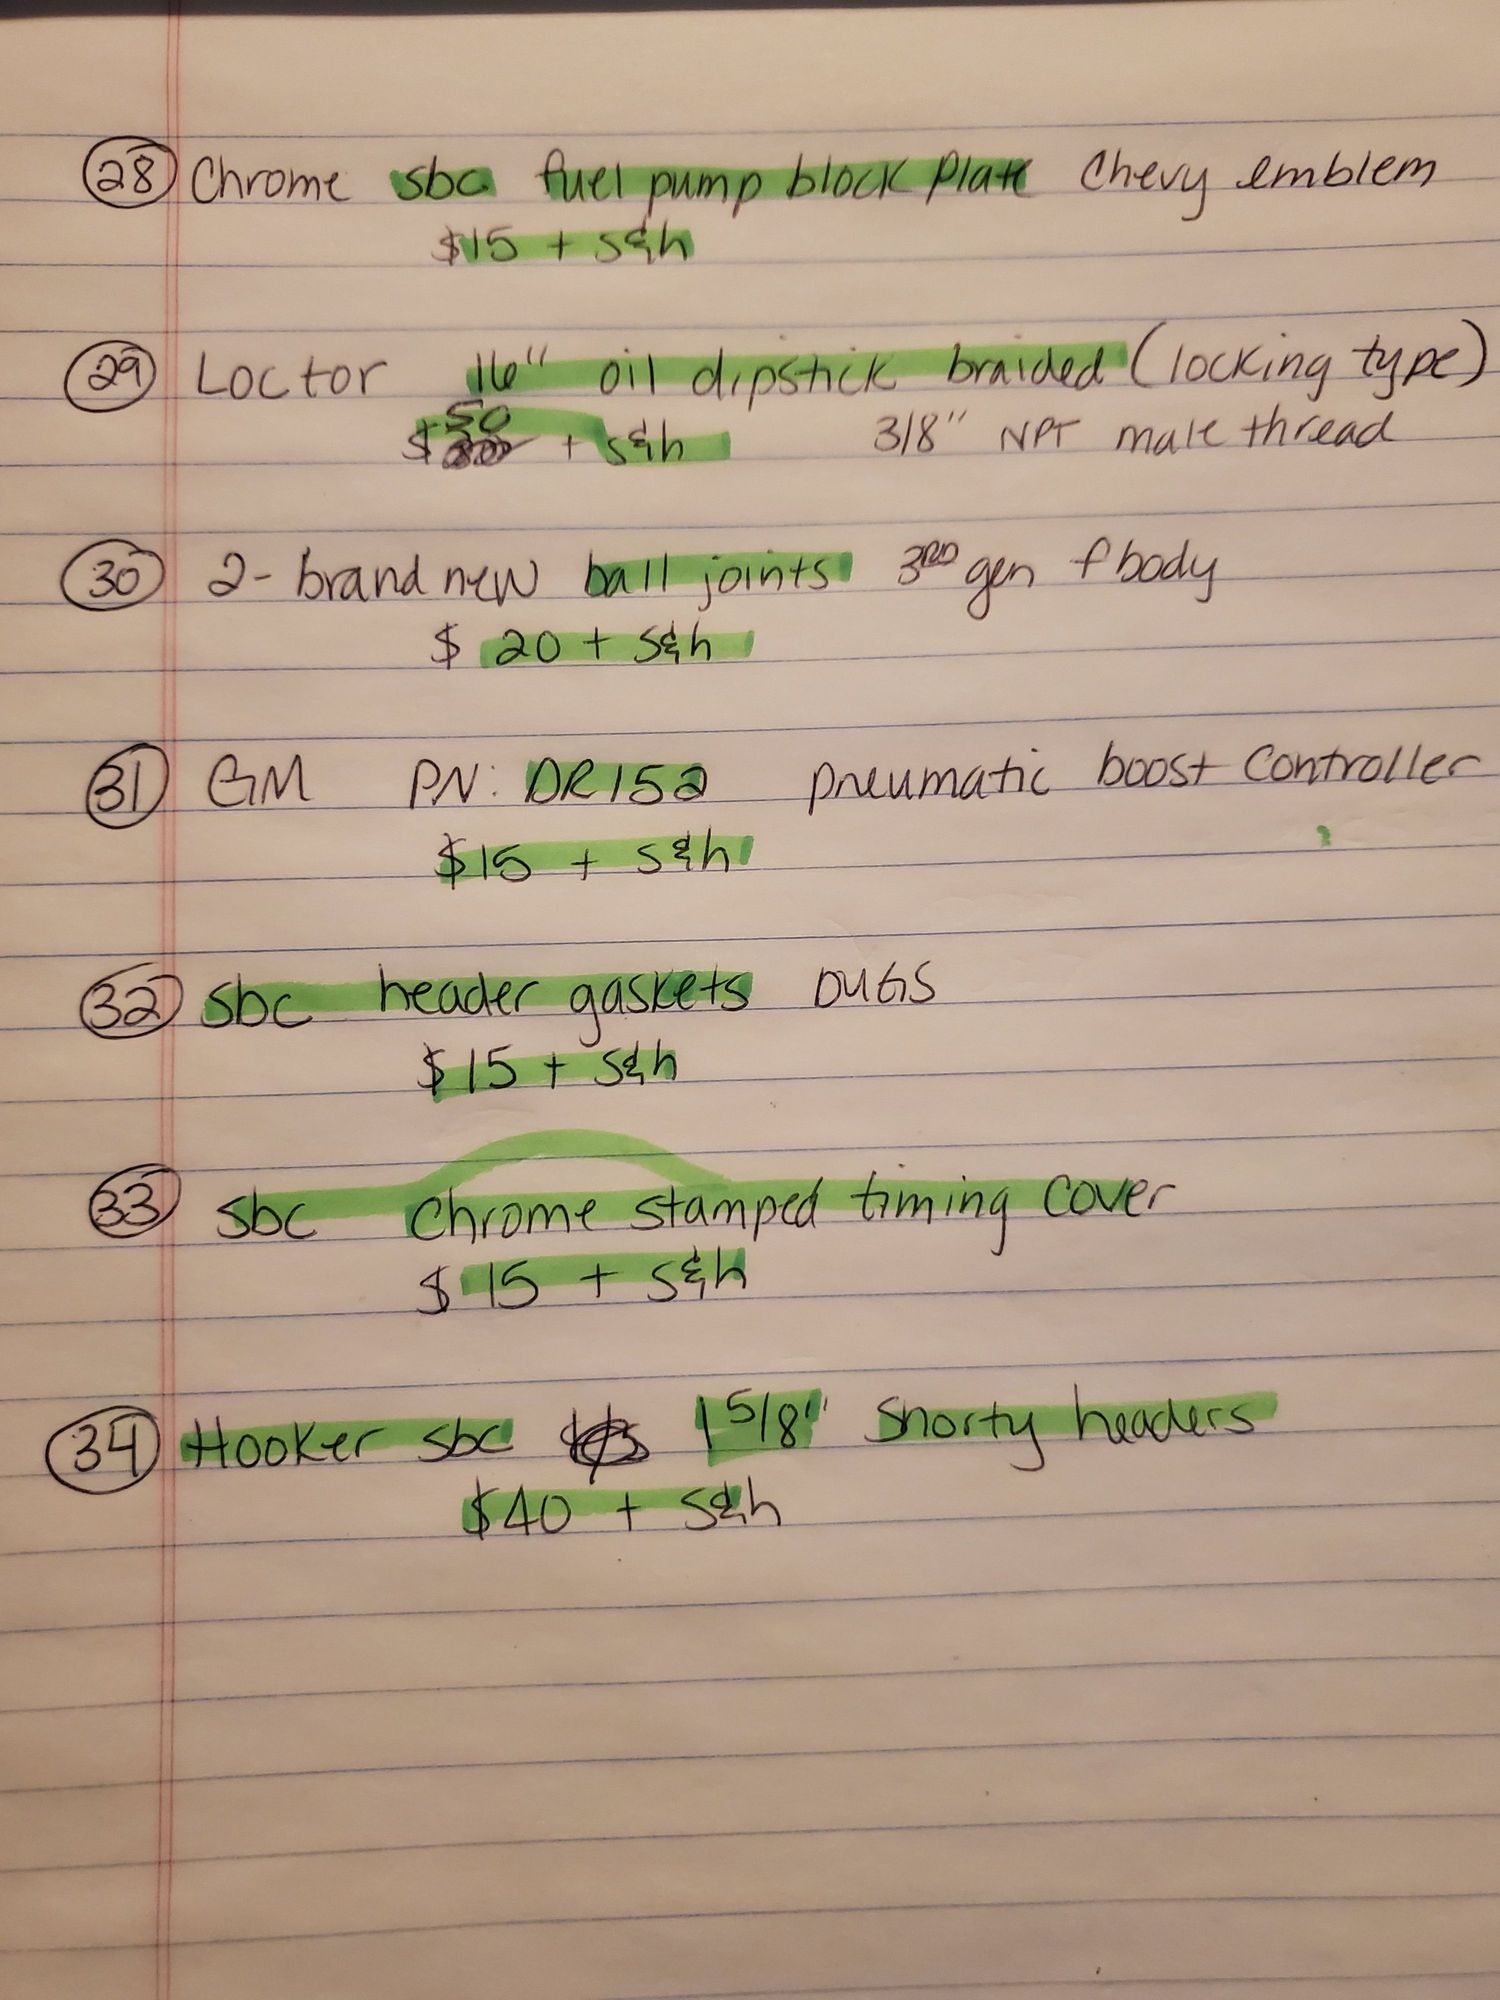 28 Chrome sbc fuel pump block plate Chevy emblem
$15 + s&h
29 Loctor 16" oil dipstick braided (locking type)
$50 + s&h 3/8" NPT male thread
30 2- brand new ball joints 3RD gen f body
$ 20 + s&h
31 GM PN: DR152 pneumatic boost controller
$15 + s&h
32 sbc header gaskets DUGS
$15 + s&h
33 sbc Chrome stamped timing cover
$ 15 + s&h
34 Hooker sbc 1 5/8" Shorty headers
$40 + s&h